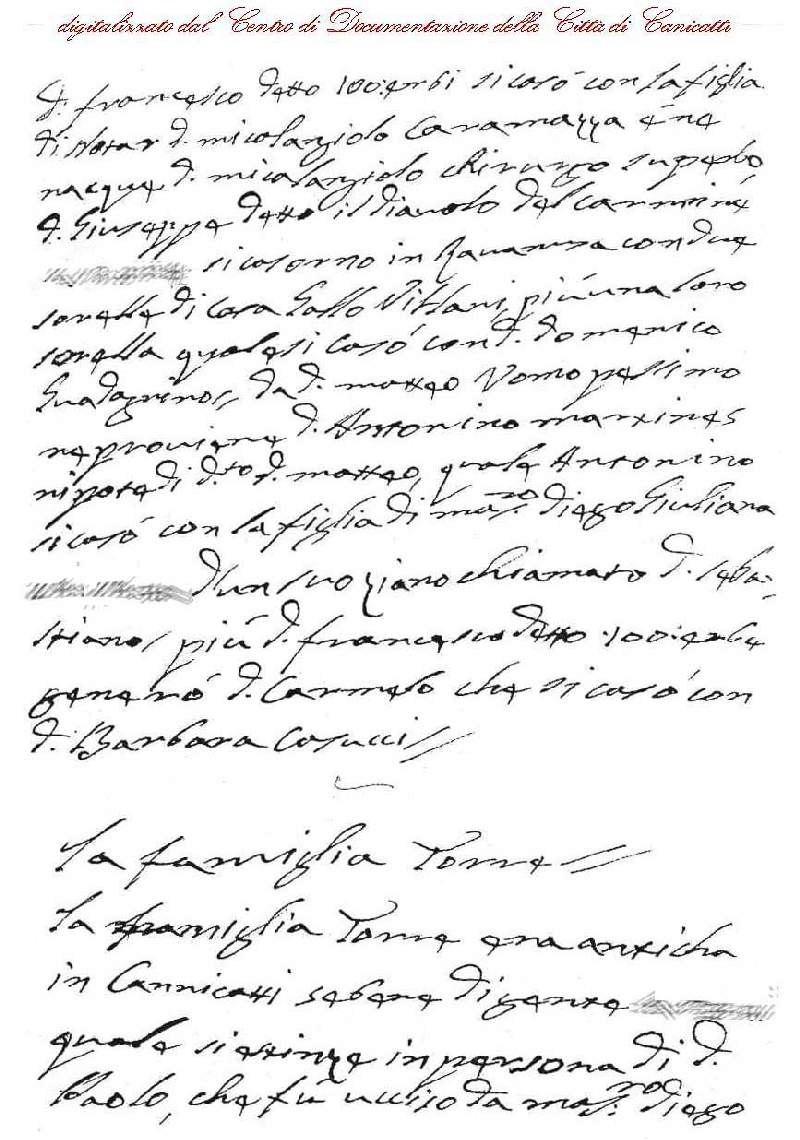 digitalizzato dal Centro di Documentazione della Città di Canicattì
d. francesco detto 100:erbi si casò con la figlia
di Notar d. micolangiolo Caramazza é ne
nacque d. micolangiolo chirurgo superbo,
d. Giuseppe detto il diavolo del Carminé
si casorno in Ravanusa con due
sorelle di casa Gallo Villani, più una loro
sorella quale si casó con d. Domenico
Guadagnino// Da d. matteo Uomo pessimo
ne proviene d. Antonino martines
nipote di d.to d. matteo, quale Antonino
si casó con la figlia di mas.ro diego Giuliana
d'un suo ziano chiamato d. seba=
stiano/ più d. francesco detto 100:erbe
generò d. Carmelo che si casó con
d. Barbara Casucci//
La famiglia Torre//
La famiglia Torre era anticha
in Cannicatti sebene di gente
quale si estinze in persona di d.
Paolo, che fù ucciso da mas.ro diego